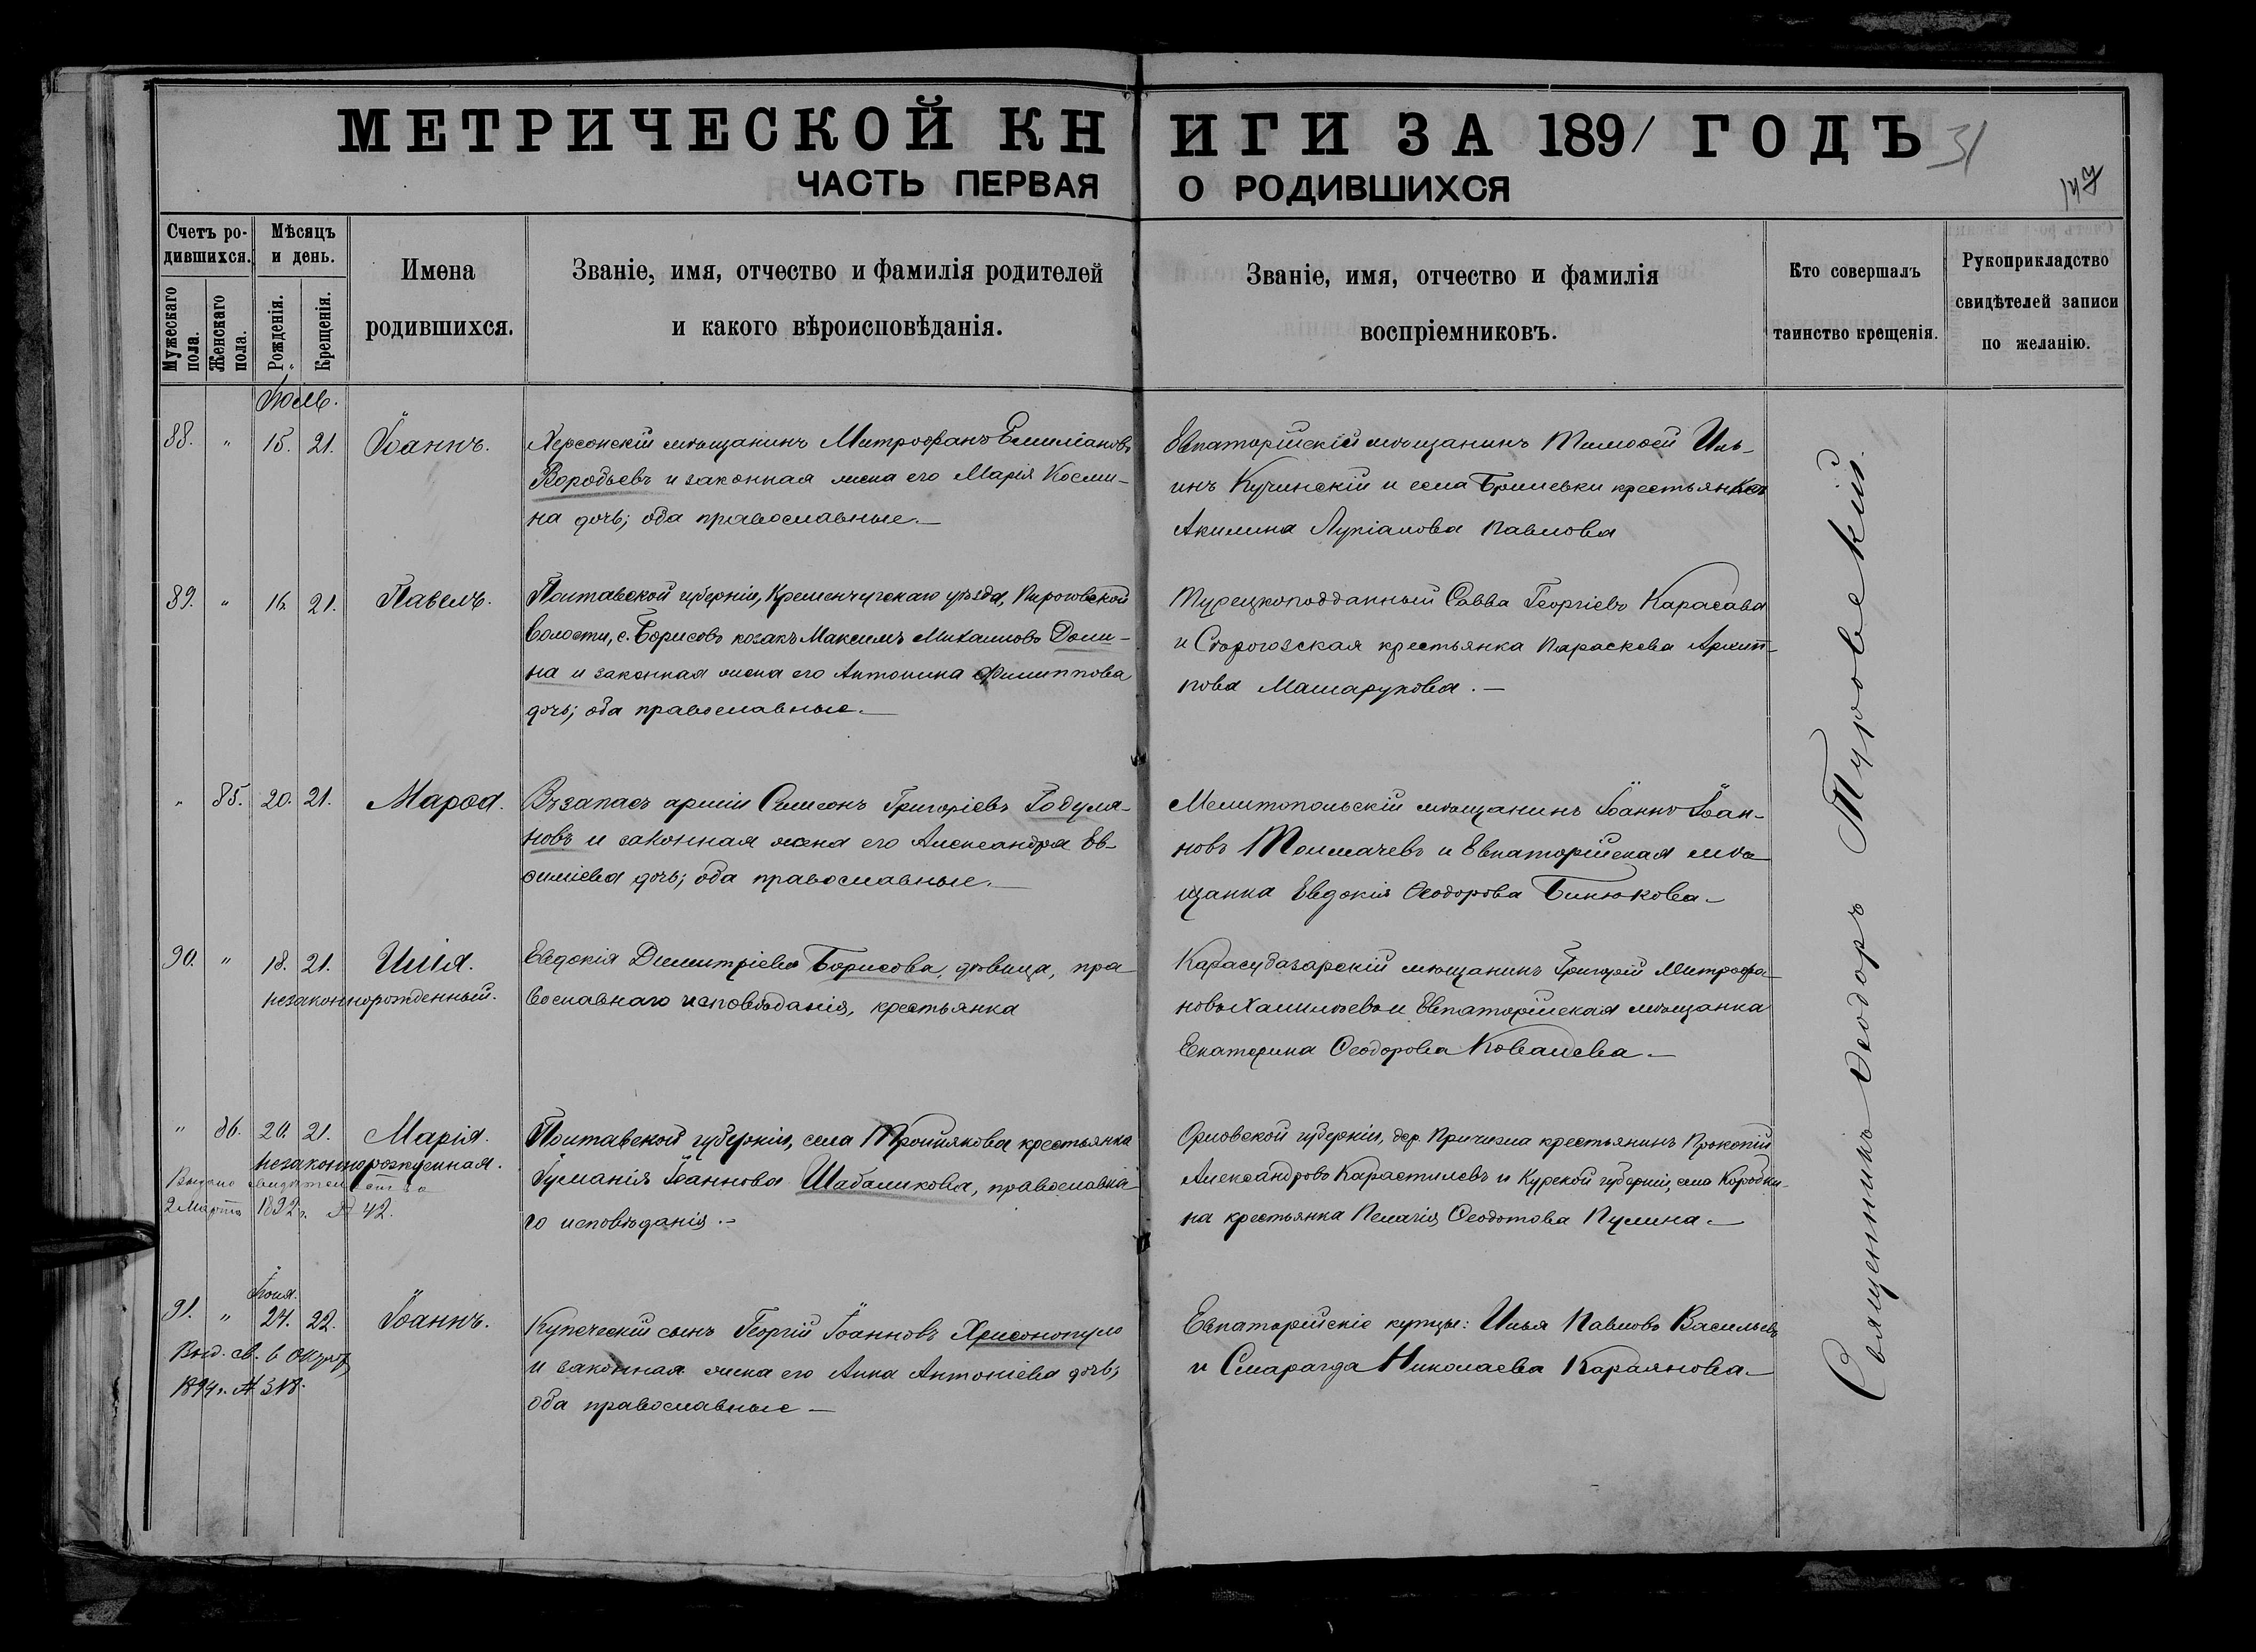 МЕТРИЧЕСКОЙ КНИГИ ЗА 1891 ГОДЪ 31
ЧАСТЬ ПЕРВАЯ О РОДИВШИХСЯ
147
Счетъ родившихся.
Мужескаго пола.
Женскаго пола.
Мѣсяцъ и день.
Рожденія.
Крещенія.
Имена
родившихся.
Званіе, имя, отчество и фамилія родителей
и какого вѣроисповѣданія.
Званіе, имя, отчество и фамилія
воспріемниковъ.
Кто совершалъ
таинство крещенія.
Рукоприкладство
свидѣтелей записи
по желанію.
Іюль.
88. " 15. 21. Іоаннъ.
Херсонскій мѣщанинъ Митрофанъ Емиліановъ
Воробьевъ и законная жена его Марія Косми-
на дочь; оба православные.—
Евпаторійскій мѣщанинъ Тимоѳей Иль-
инъ Кучинскій и села крестьянка
Акилина Лукіанова Павлова
89. " 16. 21. Павелъ.
Полтавской губерніи, Кременчугскаго уѣзда, Пироговской
волости, с. Борисовъ козакъ Максимъ Михаиловъ Доли-
на и законная жена его Антонина Филиппова
дочь; оба православные.—
Турецкоподданный Савва Георгіевъ Карасава
и крестьянка Параскева Архип-
пова Машарукова.—
" 85. 20. 21. Марѳа.
Въ запасѣ арміи Симеонъ Григоріевъ Годуля-
новъ и законная жена его Александра Ев-
ѳиміева дочь; оба православные.—
Мелитопольскій мѣщанинъ Іоаннъ Іоан-
новъ Толмачевъ и Евпаторійская мѣ-
щанка Евдокія Ѳеодорова Бинюкова.—
90. " 18. 21. Илія.
незаконнорожденный.
Евдокія Димитріева Борисова, дѣвица, пра-
вославнаго исповѣданія, крестьянка
Карасубазарскій мѣщанинъ Григорій Митрофа-
новъ и Евпаторійская мѣщанка
Екатерина Ѳеодорова Ковалева.—
" 86. 20. 21. Марія.
незаконнорожденная.
Выдано свидѣтельство
2 Марта 1892 г. № 42.
Полтавской губерніи, села Троицякова крестьянка
Іуліанія Іоаннова Шабаликова, православна-
го исповѣданія.—
Орловской губерніи, дер. крестьянинъ Прокопій
Александровъ Карастилевъ и Курской губерніи, села Коробки-
на крестьянка Пелагія Ѳеодотова Пулина.—
Іюня.
91. " 24. 22. Іоаннъ.
Выд. св. 6
1894 г. № 318.
Купеческій сынъ Георгій Іоанновъ Хрисонопуло
и законная жена его Анна Антоніева дочь;
оба православные—
Евпаторійскіе купцы: Илья Павловъ Васильевъ
и Смарагда Николаева Караянова.—
Священникъ Ѳеодоръ Туровскій.